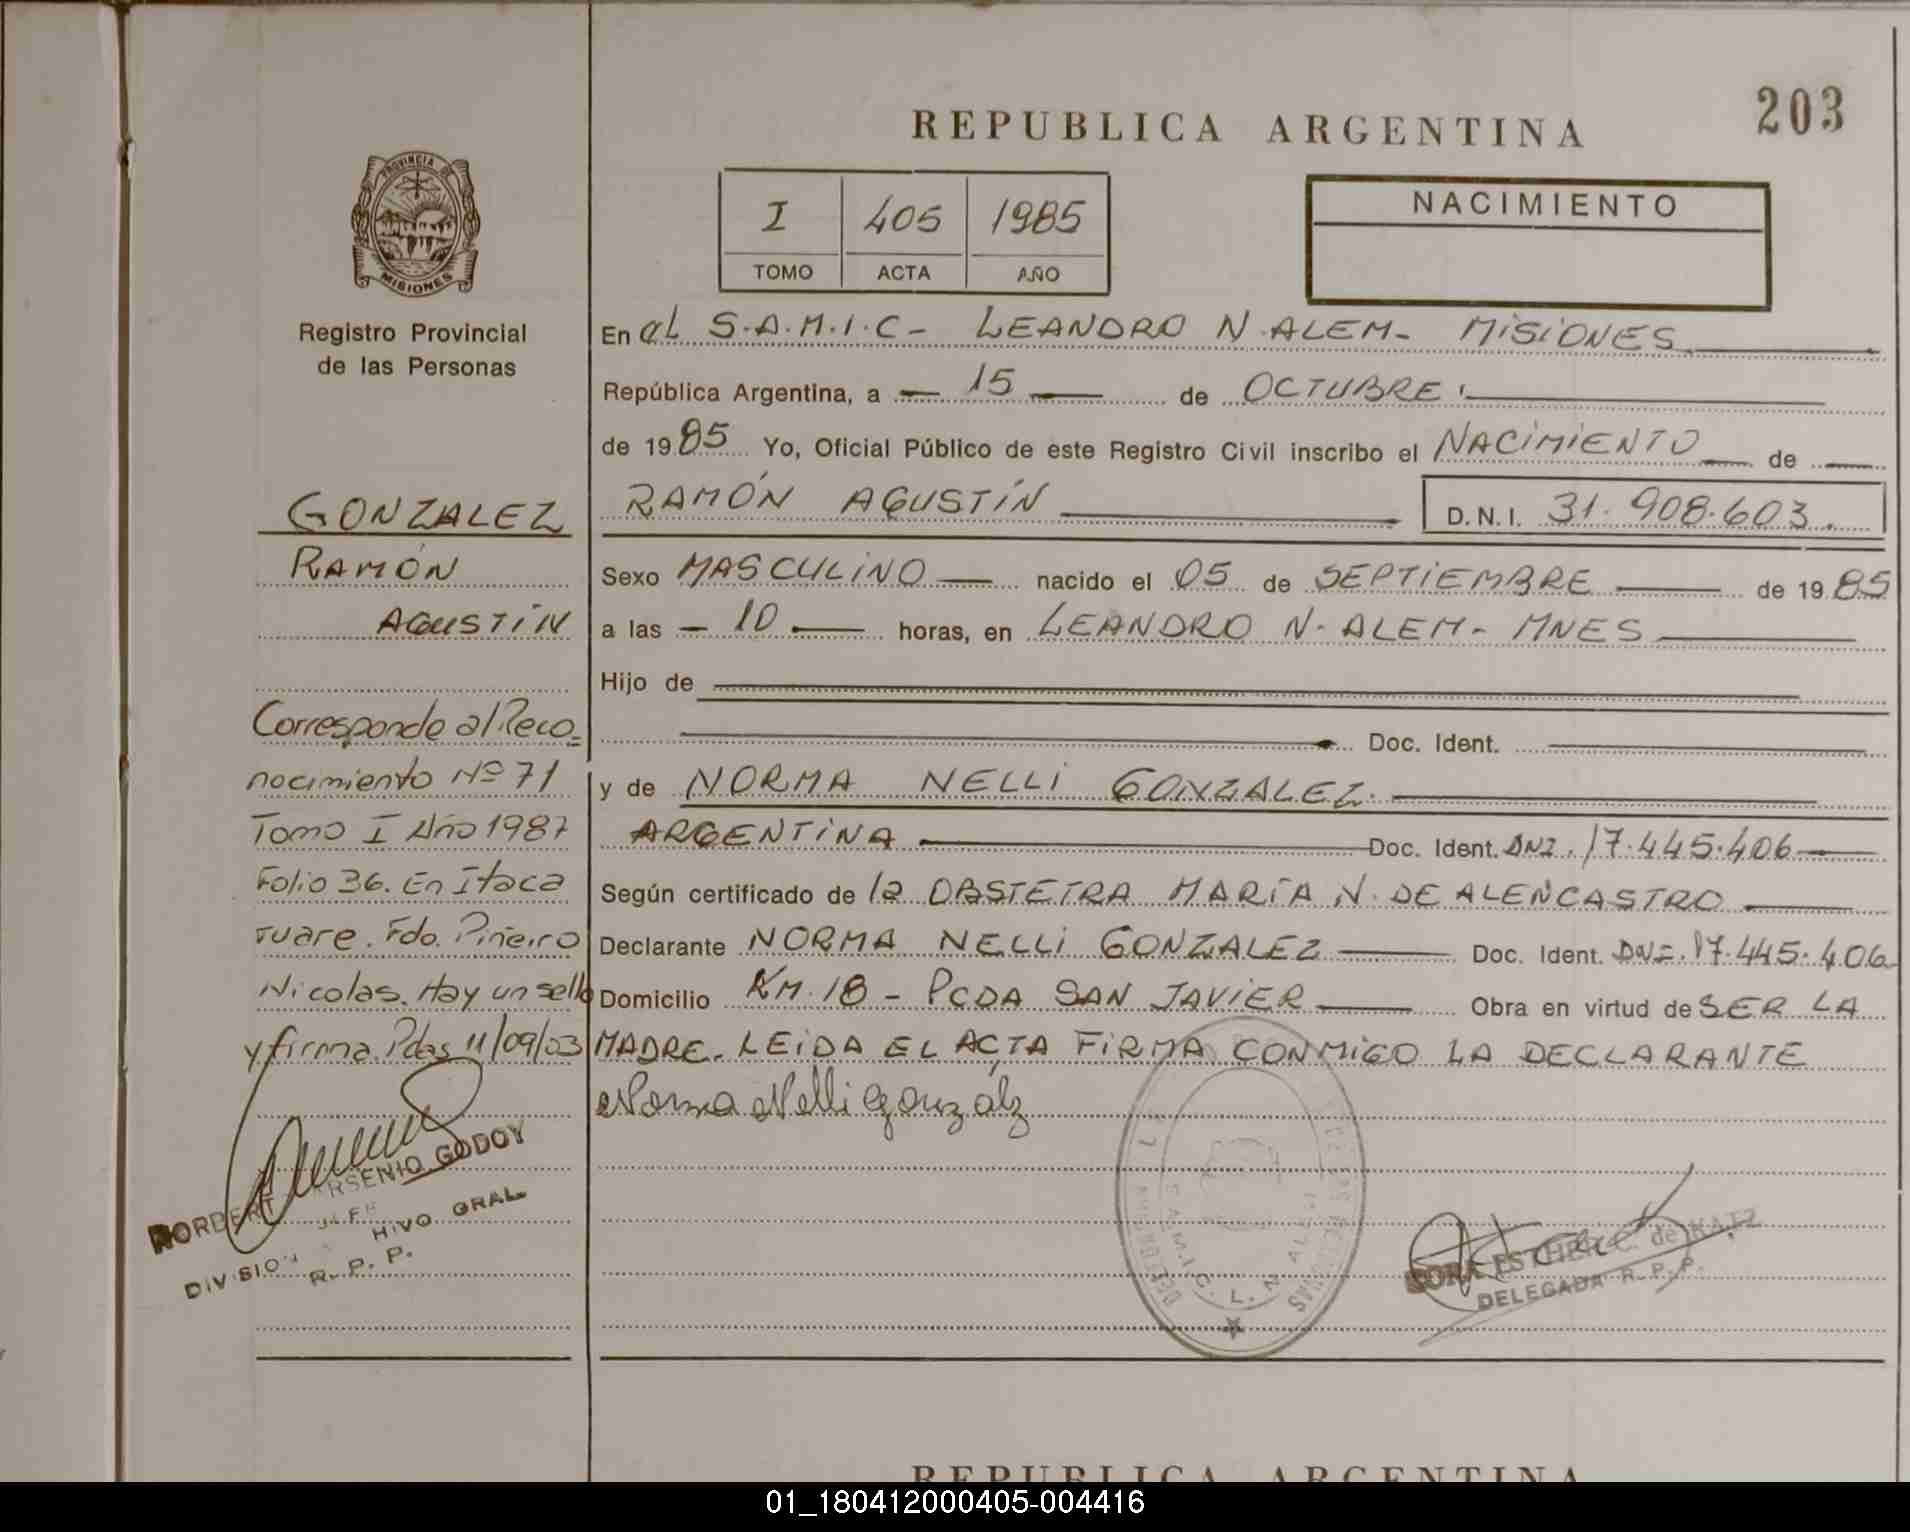 203
REPUBLICA ARGENTINA
PROVINCIA DE
MISIONES
Registro Provincial
de las Personas
I 405 1985
TOMO ACTA AÑO
NACIMIENTO
En el S.A.M.I.C- LEANDRO N. ALEM- MISIONES
República Argentina, a 15 de OCTUBRE
de 1985 Yo, Oficial Público de este Registro Civil inscribo el NACIMIENTO de
RAMÓN AGUSTÍN D.N.I. 31.908.603.
Sexo MASCULINO nacido el 05 de SEPTIEMBRE de 1985
a las 10 horas, en LEANDRO N. ALEM- MNES
Hijo de
Doc. Ident.
y de NORMA NELLI GONZALEZ.
ARGENTINA Doc. Ident. DNI. 17.445.406
Según certificado de la OBSTETRA MARÍA N. DE ALENCASTRO
Declarante NORMA NELLI GONZALEZ Doc. Ident. DNI. 17.445.406
Domicilio KM.18 - PCDA SAN JAVIER Obra en virtud de SER LA
MADRE. LEIDA EL ACTA FIRMA CONMIGO LA DECLARANTE
Norma Nelli Gonzalz
GONZALEZ
RAMÓN
AGUSTÍN
Corresponde al Reco-
nocimiento Nº 71
Tomo I Año 1987
Folio 36. En Itaca
ruare. Fdo. Piñeiro
Nicolas. Hay un sello
y firma. Pdas 11/09/03
NORBERT ARSENIO GODOY
JEFE
DIVISION HIVO GRAL
R. P. P.
S.A.M.I.C. L. N. ALEM
ESTHER C. de KATZ
DELEGADA R. P. P.
REPUBLICA ARGENTINA
01_180412000405-004416